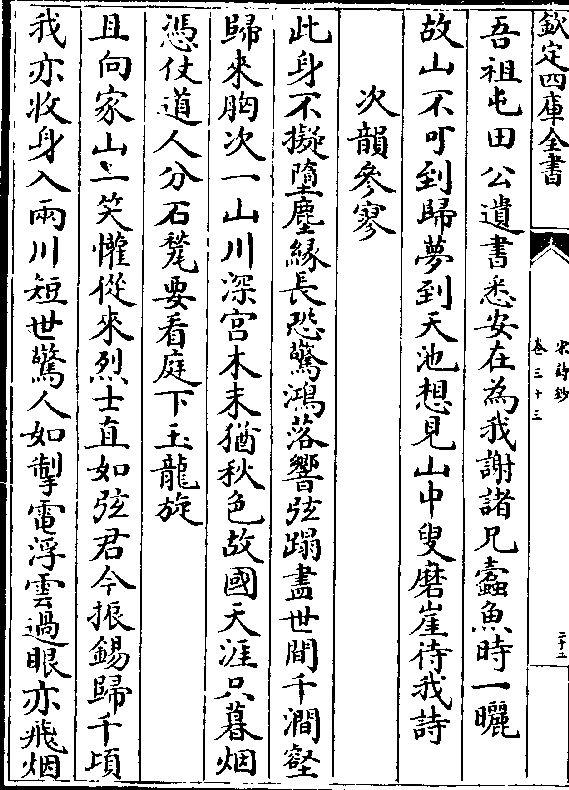 欽定四庫全書
宋詩鈔
卷三十三
二十三
吾祖屯田公遺書悉安在為我謝諸兄蠹魚時一曬
故山不可到歸夢到天池想見山中叟磨崖待我詩
次韻參寥
此身不擬墮塵緣長恐驚鴻落響弦蹋盡世間千澗壑
歸來胸次一山川深宫木末猶秋色故國天涯只暮烟
憑仗道人分石甃要看庭下玉龍旋
且向家山一笑懽從來烈士直如弦君今振錫歸千頃
我亦收身入兩川短世驚人如掣電浮雲過眼亦飛烟